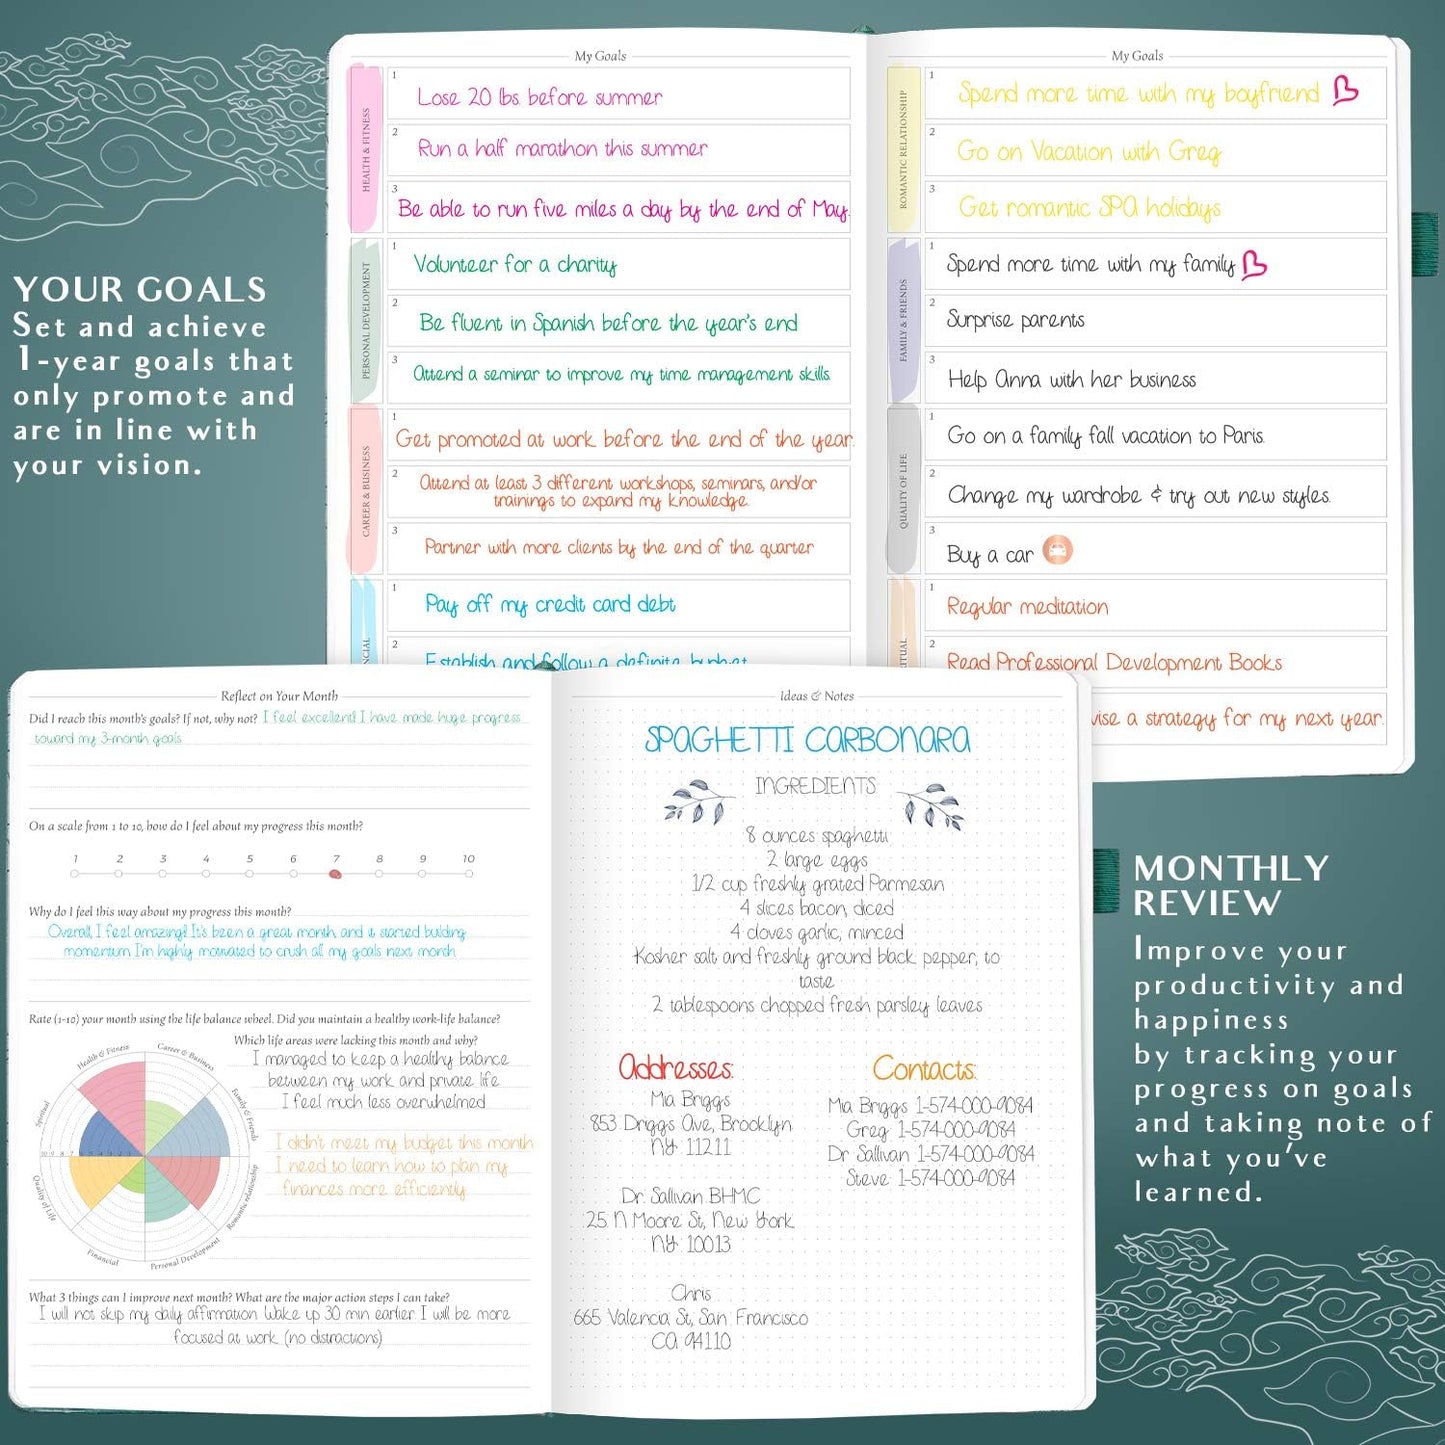 YOUR GOALS
Set and achieve
1-year goals that
only promote and
are in line with
your vision.
My Goals
HEALTH & FITNESS
1
Lose 20 lbs. before summer
2
Run a half marathon this summer
3
Be able to run five miles a day by the end of May.
PERSONAL DEVELOPMENT
1
Volunteer for a charity
2
Be fluent in Spanish before the year's end
3
Attend a seminar to improve my time management skills.
CAREER & BUSINESS
1
Get promoted at work before the end of the year.
2
Attend at least 3 different workshops, seminars, and/or
trainings to expand my knowledge.
3
Partner with more clients by the end of the quarter
1
Pay off my credit card debt
2
Establish and follow a definite budget
My Goals
ROMANTIC RELATIONSHIP
1
Spend more time with my boyfriend
2
Go on Vacation with Greg
3
Get romantic SPA holidays
FAMILY & FRIENDS
1
Spend more time with my family
2
Surprise parents
3
Help Anna with her business
QUALITY OF LIFE
1
Go on a family fall vacation to Paris.
2
Change my wardrobe & try out new styles.
3
Buy a car
1
Regular meditation
2
Read Professional Development Books
vise a strategy for my next year.
Reflect on Your Month
Did I reach this month's goals? If not, why not? I feel excellent! I have made huge progress
toward my 3-month goals.
On a scale from 1 to 10, how do I feel about my progress this month?
1 2 3 4 5 6 7 8 9 10
Why do I feel this way about my progress this month?
Overall, I feel amazing! It's been a great month, and it started building
momentum. I'm highly motivated to crush all my goals next month.
Rate (1-10) your month using the life balance wheel. Did you maintain a healthy work-life balance?
Health & Fitness
Career & Business
Family & Friends
Romantic relationship
Personal Development
Financial
Quality of Life
Spiritual
10 9 8 7 6 5 4 3 2 1
Which life areas were lacking this month and why?
I managed to keep a healthy balance
between my work and private life
I feel much less overwhelmed
I didn't meet my budget this month
I need to learn how to plan my
finances more efficiently.
What 3 things can I improve next month? What are the major action steps I can take?
I will not skip my daily affirmation. Wake up 30 min earlier. I will be more
focused at work (no distractions)
Ideas & Notes
SPAGHETTI CARBONARA
INGREDIENTS
8 ounces spaghetti
2 large eggs
1/2 cup freshly grated Parmesan
4 slices bacon, diced
4 cloves garlic, minced
Kosher salt and freshly ground black pepper, to
taste
2 tablespoons chopped fresh parsley leaves
Addresses:
Mia Briggs
853 Driggs Ave, Brooklyn
NY 11211
Dr. Sallivan BHMC
25 N Moore St, New York
NY 10013
Chris
665 Valencia St, San Francisco
CA 94110
Contacts:
Mia Briggs 1-574-000-9084
Greg 1-574-000-9084
Dr Sallivan 1-574-000-9084
Steve 1-574-000-9084
MONTHLY
REVIEW
Improve your
productivity and
happiness
by tracking your
progress on goals
and taking note of
what you've
learned.